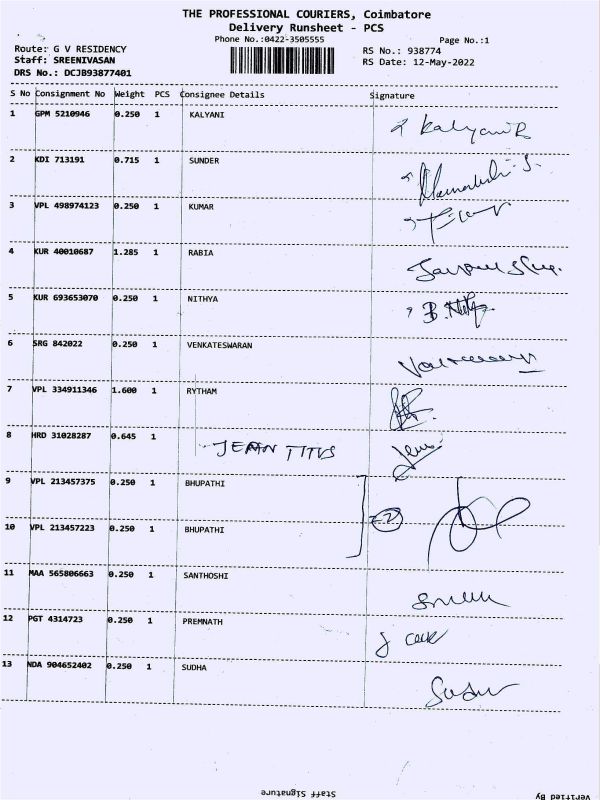 THE PROFESSIONAL COURIERS, Coimbatore
Delivery Runsheet - PCS
Phone No.:0422-3505555
Page No.:1
Route: G V RESIDENCY
RS No.: 938774
Staff: SREENIVASAN
RS Date: 12-May-2022
DRS No.: DCJB93877401
S No Consignment No Weight PCS Consignee Details Signature
1 GPM 5210946 0.250 1 KALYANI
2 KDI 713191 0.715 1 SUNDER
3 VPL 498974123 0.250 1 KUMAR
4 KUR 40010687 1.285 1 RABIA
5 KUR 693653070 0.250 1 NITHYA
6 SRG 842022 0.250 1 VENKATESWARAN
7 VPL 334911346 1.600 1 RYTHAM
8 HRD 31028287 0.645 1 JEAN TITUS
9 VPL 213457375 0.250 1 BHUPATHI
10 VPL 213457223 0.250 1 BHUPATHI
11 MAA 565806663 0.250 1 SANTHOSHI
12 PGT 4314723 0.250 1 PREMNATH
13 NDA 904652402 0.250 1 SUDHA
Staff Signature
Verified By